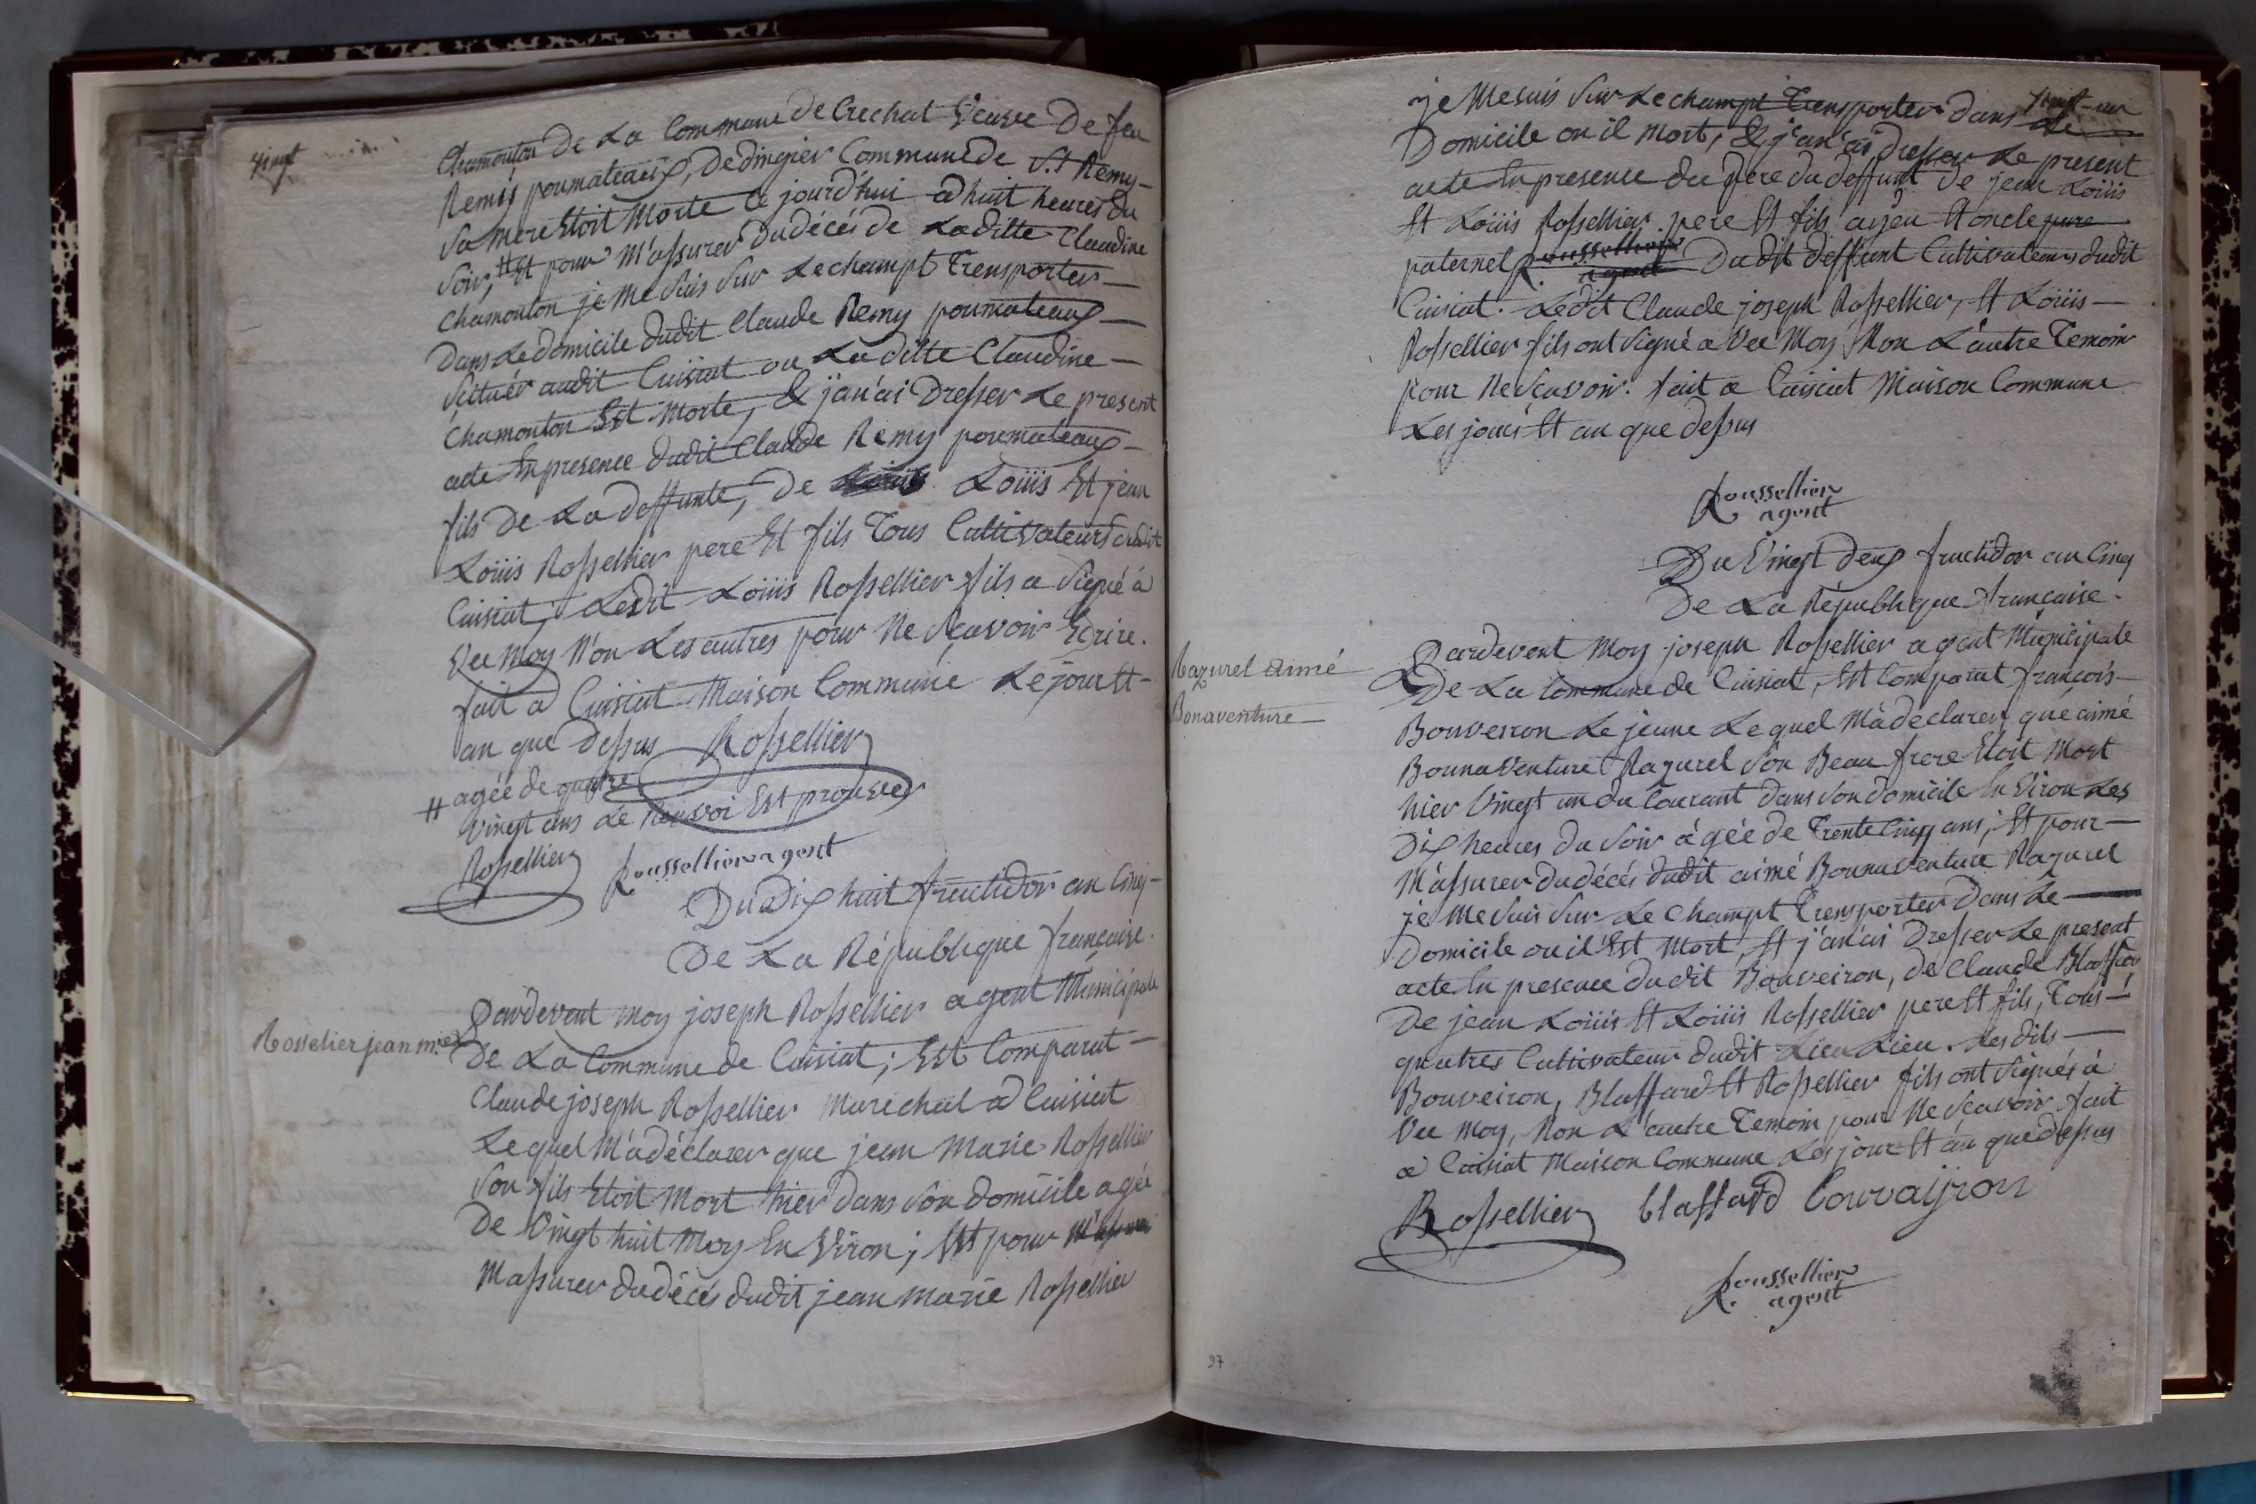 Vingt
Chamonton De La Commune de Crechat Veuve De feu
Remis poumateaux, Dedingier Commune de St Remy-
Sa mere Etoit Morte Ce jourd'hui a huit heures du
Soir, # Et pour M'assurer du décés de Laditte Claudine
Chamonton je Me Suis Sur Lechampt Trensporter
Dans Le domicile dudit Claude Remy poumateaux
Scituér audit Cuisiat ou La ditte Claudine
Chamonton Est Morte, & j'an'ai Dresser Le present
acte En presence dudit Claude Remy poumateaux
fils De La deffunte, De Louis Louis Et jean
Louis Rossellier pere Et fils Tous Cultivateurs dudit
Cuisiat, Ledit Louis Rossellier fils a Signé à
Vec Moy Non Les autres pour Ne Scavoir Ecrire.
fait a Cuisiat Maison Commune Le jour Et
an que Dessus Rossellier
# agée de quatre
Vingt ans Le Renvoi Est prouver
Rossellier Roussellier agent
Du Dix huit fructidor an Cinq
De La République française.
Rosselier jean m.ie
Pardevent Moy joseph Rossellier agent Municipale
De La Commune de Cuisiat; Est Comparut
Claude joseph Rossellier Marechal a Cuisiat
Lequel M'a déclarer que jean Marie Rossellier
Son fils Etoit Mort hier dans Son domicile agée
De Vingt huit Moy En Viron; Et pour M'assurer
Massurer dudécés dudit jean Marie Rossellier
Vingt-un
je Me suis Sur Lechampt Trensporter dans Le
Domicile ou il Mort, & j'an'ai dresser Le present
acte En presence du pere du deffunt De jean Louis
Et Louis Rossellier pere Et fils ayeu Et oncle pure
paternel Roussellier agent Dudit deffunt Cultivateurs dudit
Cuisiat. Ledit Claude joseph Rossellier, Et Louis
Rossellier fils ont Signé a Vec Moy Non L'autre Temoin
pour Ne Scavoir. fait a Cuisiat Maison Commune
Les jours Et an que dessus
Roussellier
agent
Du Vingt deux fructidor an Cinq
De La République française.
Razurel aimé
Bonaventure
Pardevent Moy joseph Rossellier agent Municipale
De La Commune de Cuisiat, Est Comparut françois
Bouveiron Le jeune Lequel M'a declarer que aimé
Bounaventure Razurel Son Beau frere Etoit Mort
hier Vingt un du Courant dans Son domicile En Viron Les
Dix heures du Soir agée de Trente Cinq ans; Et pour
M'assurer dudécés dudit aimé Bounaventure Razurel
je Me Suis Sur Le Champt Trensporter Dans Le
Domicile ou il Est Mort, Et j'an'ai Dresser Le present
acte En presence dudit Bouveiron, de Claude Blaffard
De jean Louis Et Louis Rossellier pere Et fils, Tous
quatres Cultivateur dudit Lieu Lieu. Les dits
Bouveiron, Blaffard Et Rossellier fils ont Signés à
Vec Moy, Non L'autre Temoin pour Ne Scavoir fait
a Cuisiat Maison Commune Les jour Et an que dessus
Rossellier blaffard bouvaijron
Roussellier
agent
97